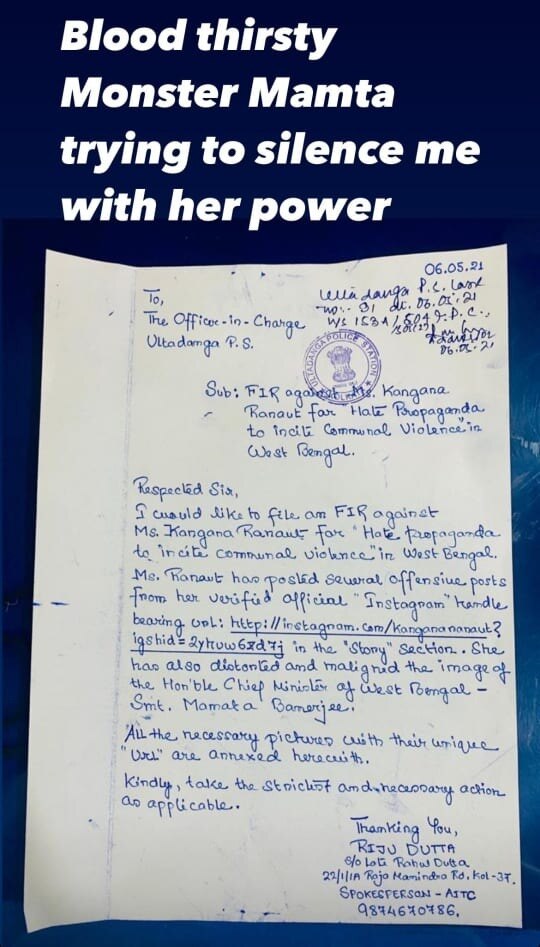 Blood thirsty
Monster Mamta
trying to silence me
with her power
06.05.21
To,
The Officer-in-Charge
Ultadanga P.S.
Ultadanga P.S. Case
no. 91 dt. 06.05.21
u/s 153A/504
I.P.C.
06.05.21
ULTADANGA POLICE STATION
Sub: FIR against Ms. Kangana
Ranaut for Hate Propaganda
to incite Communal Violence" in
West Bengal.
Respected Sir,
I would like to file an FIR against
Ms. Kangana Ranaut for "Hate Propaganda
to incite communal violence" in West Bengal.
Ms. Ranaut has posted several offensive posts
from her verified official "Instagram" handle
bearing url: http://instagram.com/kangananaut?
igshid=2yhuw6xd7j in the "Story" section. She
has also distorted and maligned the image of
the Hon'ble Chief Minister of West Bengal -
Smt. Mamata Banerjee.
All the necessary pictures with their unique
"Url" are annexed herewith.
Kindly, take the strictest and necessary action
as applicable.
Thanking You,
RIJU DUTTA
S/o Late Rahul Dutta
22/1/1A Raja Manindra Rd. Kol-37.
SPOKESPERSON - AITC
9874670786.